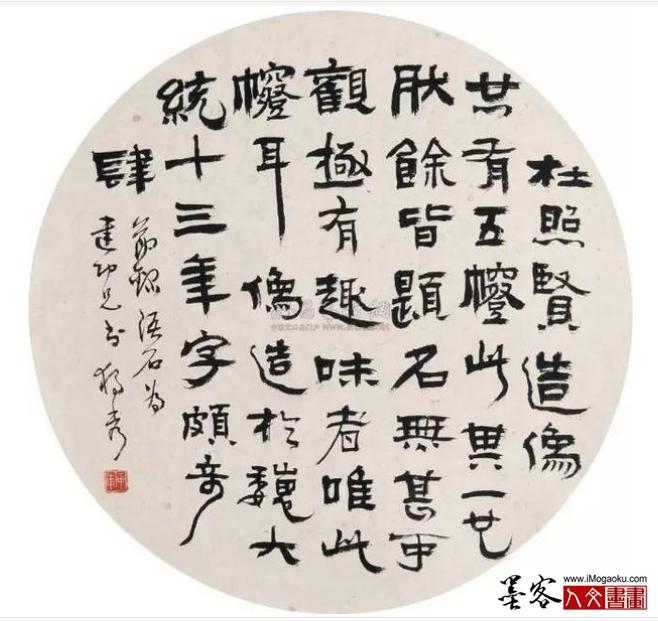 杜照賢造像
共有五幢此其一也
肰餘皆題名無甚可
觀極有趣味者唯此
幢耳像造於魏大
統十三年字頗奇
肆
節錄語石為
建功兄書 獨秀
墨客 www.iMogaoku.com
人文書畫